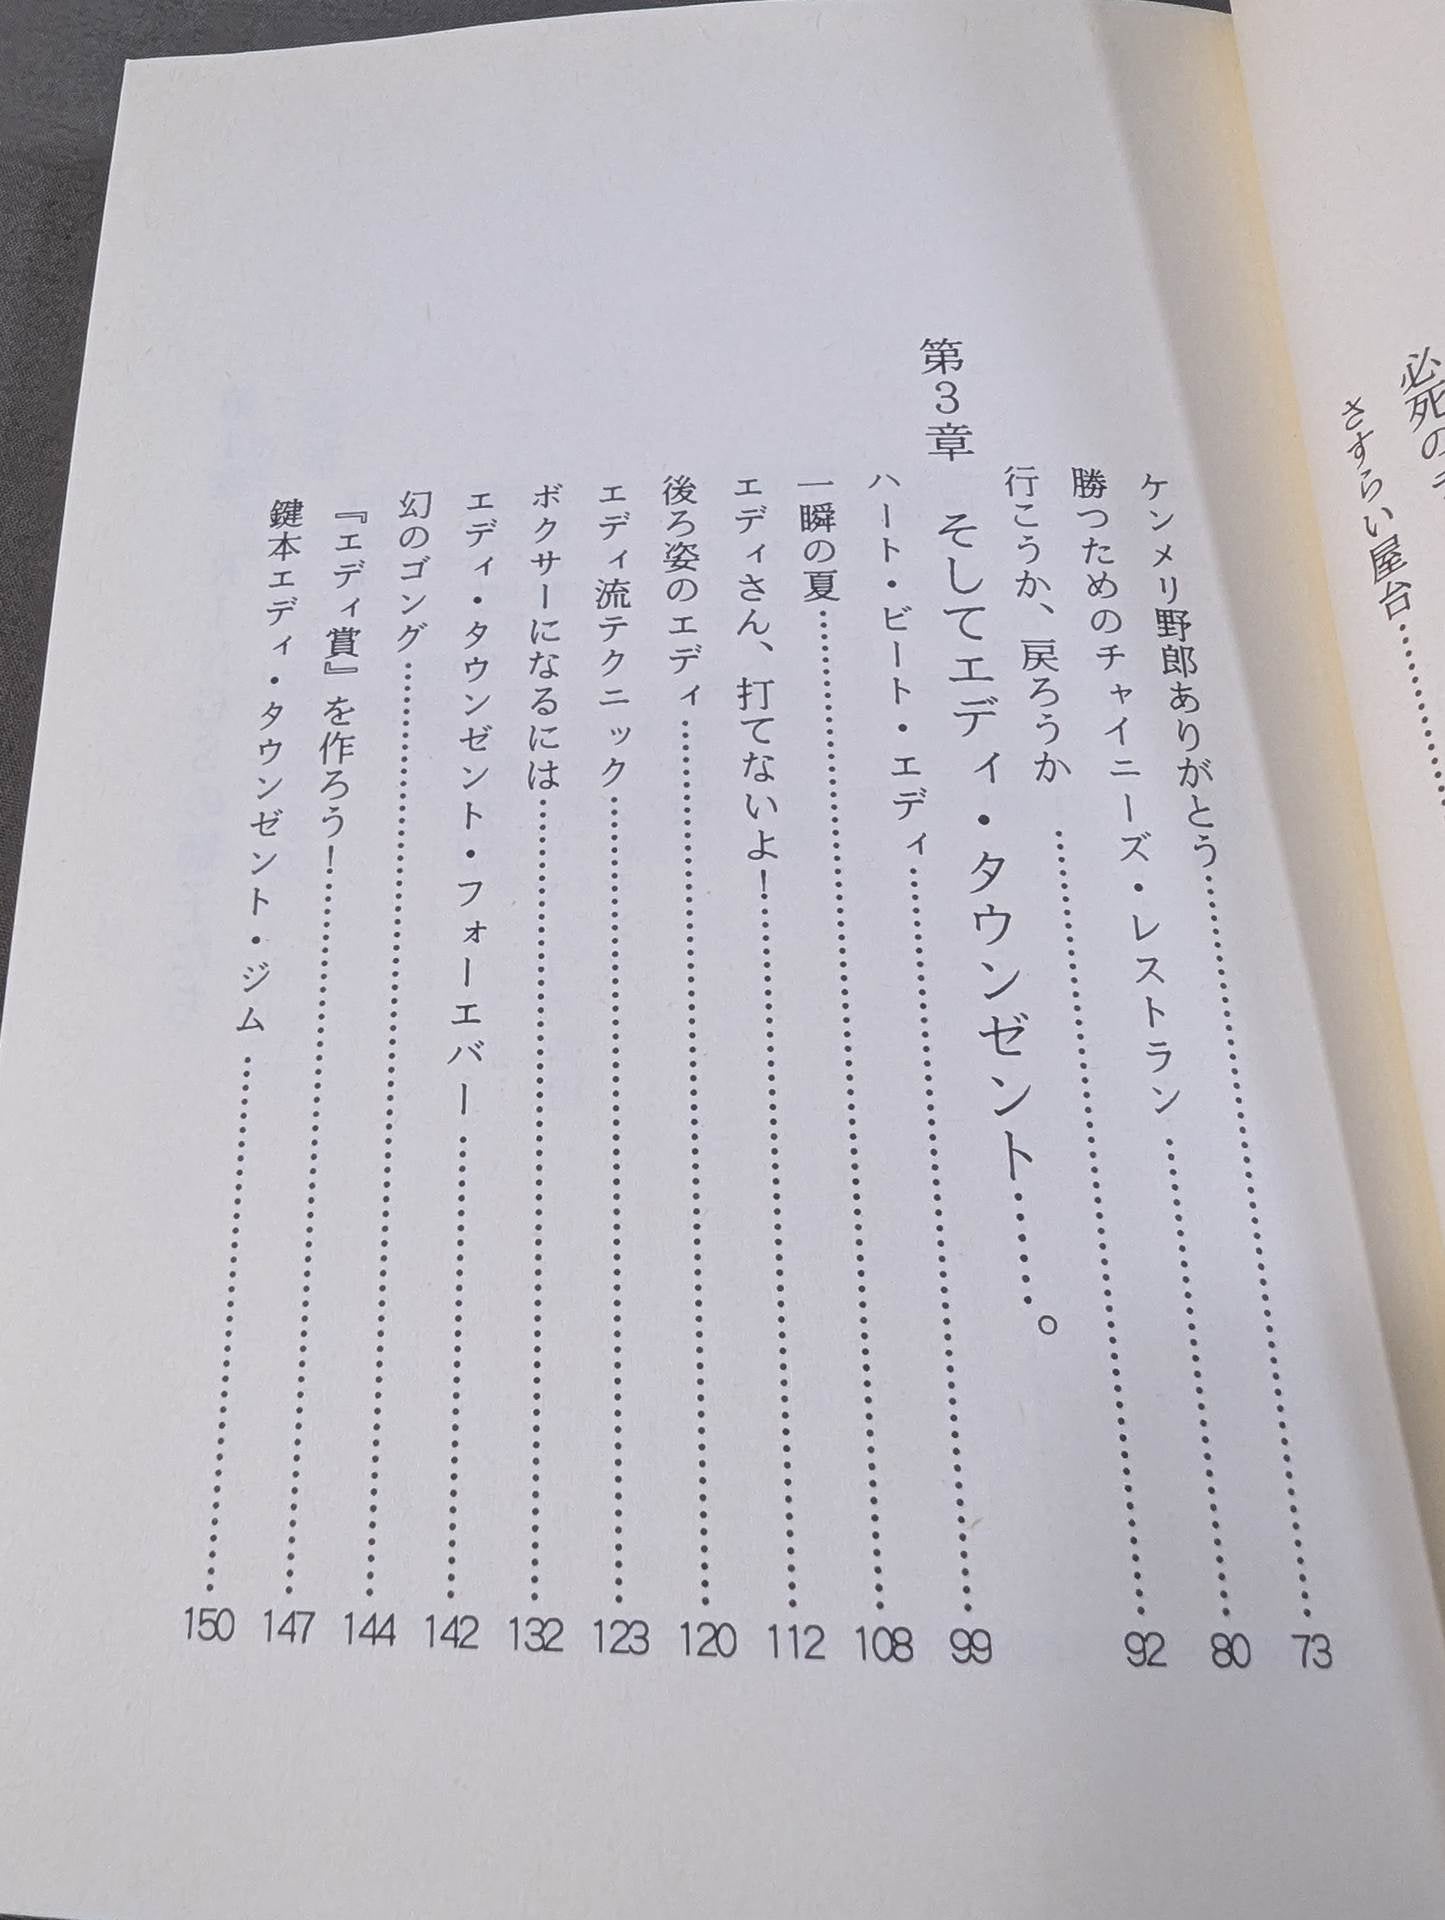 必死の
さすらい屋台………
ケンメリ野郎ありがとう………73
勝つためのチャイニーズ・レストラン………80
行こうか、戻ろうか………92
第3章 そしてエディ・タウンゼント……。
ハート・ビート・エディ………99
一瞬の夏………108
エディさん、打てないよ！………112
後ろ姿のエディ………120
エディ流テクニック………123
ボクサーになるには………132
エディ・タウンゼント・フォーエバー………142
幻のゴング………144
『エディ賞』を作ろう！………147
鍵本エディ・タウンゼント・ジム………150